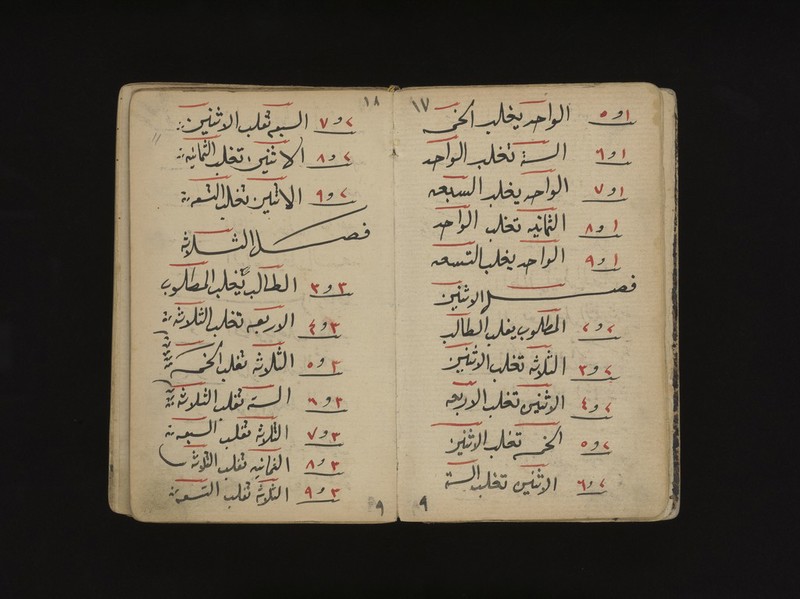 ١٧
١ و ٥ الواحد يغلب الخمسه
١ و ٦ الستة تغلب الواحد
١ و ٧ الواحد يغلب السبعه
١ و ٨ الثمانيه تغلب الواحد
١ و ٩ الواحد يغلب التسعه
فصل الاثنين
٢ و ٢ المطلوب يغلب الطالب
٢ و ٣ الثلاثة تغلب الاثنين
٢ و ٤ الاثنين تغلب الاربعه
٢ و ٥ الخمسه تغلب الاثنين
٢ و ٦ الاثنين تغلب الستة
٩
١٨
٢ و ٧ السبعه تغلب الاثنين
٢ و ٨ الاثنين تغلب الثمانيه
٢ و ٩ الاثنين تغلب التسعه
فصل الثلاثة
٣ و ٣ الطالب يغلب المطلوب
٣ و ٤ الاربعه تغلب الثلاثة
٣ و ٥ الثلاثة تغلب الخمسه
٣ و ٦ الستة تغلب الثلاثة
٣ و ٧ الثلاثة تغلب السبعه
٣ و ٨ الثمانيه تغلب الثلاثة
٣ و ٩ الثلاثة تغلب التسعه
٩